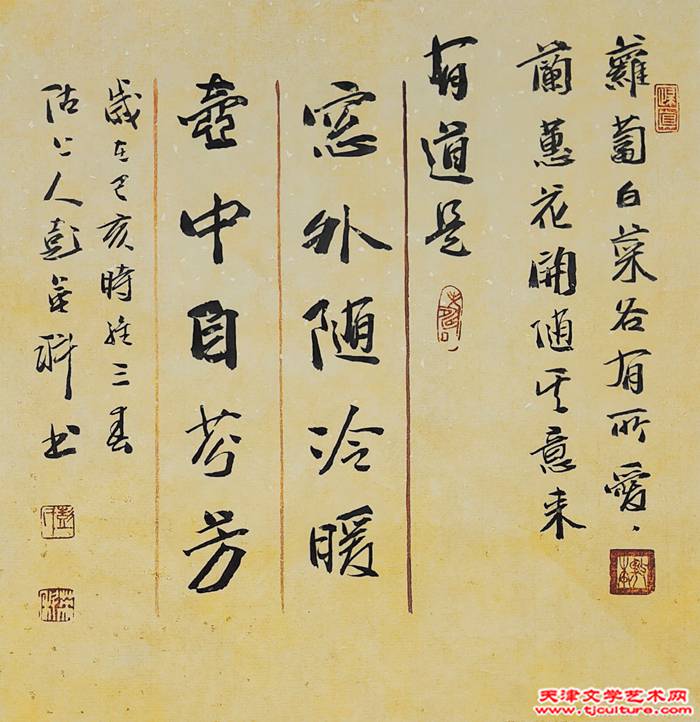 蘿蔔白菜各有所愛
蘭蕙花開随其意来
有道是
窓外随冷暖
壺中自芬芳
歲在己亥時維三春
沽上人彭英科书
天津文学艺术网
www.tjculture.com